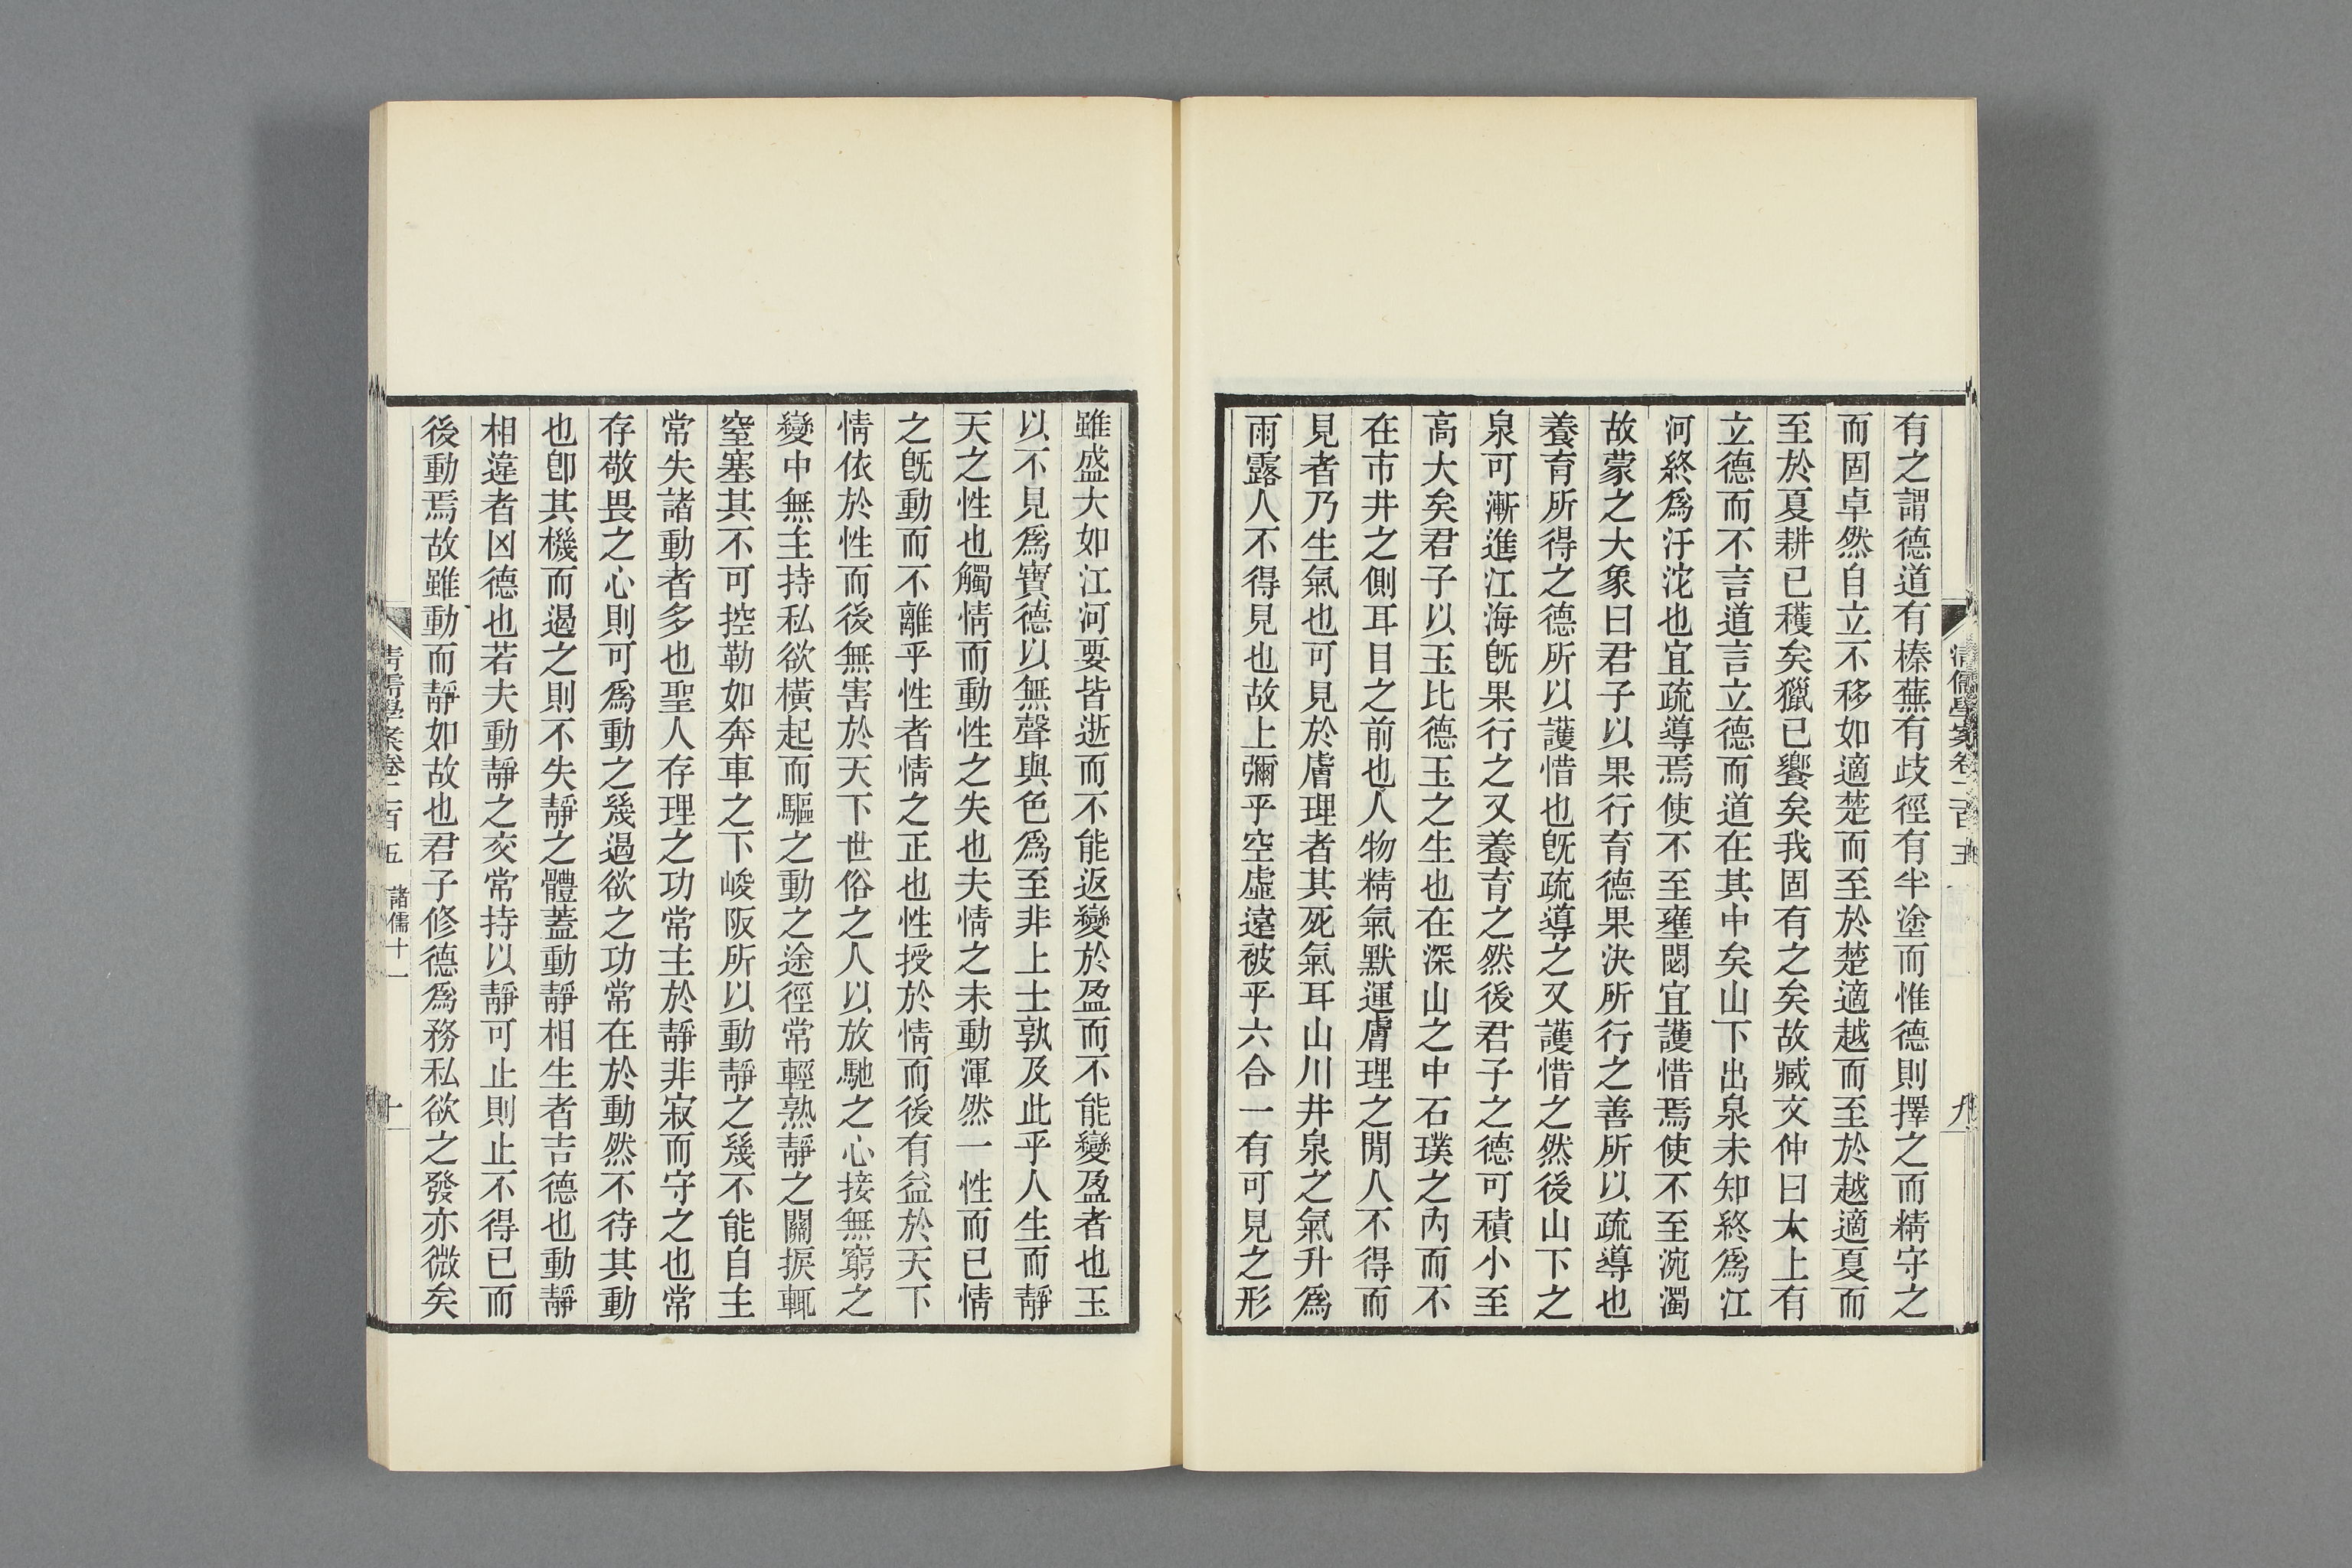 清儒學案卷二百五
九
有之謂德道有榛蕪有歧徑有半塗而惟德則擇之而精守之
而固卓然自立不移如適楚而至於楚適越而至於越適夏而
至於夏耕已穫矣獵已饗矣我固有之矣故臧文仲曰太上有
立德而不言道言立德而道在其中矣山下出泉未知終爲江
河終爲汙沱也宜疏導焉使不至壅閼宜護惜焉使不至涴濁
故蒙之大象曰君子以果行育德果決所行之善所以疏導也
養育所得之德所以護惜也旣疏導之又護惜之然後山下之
泉可漸進江海旣果行之又養育之然後君子之德可積小至
高大矣君子以玉比德玉之生也在深山之中石璞之內而不
在市井之側耳目之前也人物精氣默運膚理之閒人不得而
見者乃生氣也可見於膚理者其死氣耳山川井泉之氣升爲
雨露人不得見也故上彌乎空虛遠被乎六合一有可見之形
雖盛大如江河要皆逝而不能返變於盈而不能變盈者也玉
以不見爲寶德以無聲與色爲至非上士孰及此乎人生而靜
天之性也觸情而動性之失也夫情之未動渾然一性而已情
之旣動而不離乎性者情之正也性授於情而後有益於天下
情依於性而後無害於天下世俗之人以放馳之心接無窮之
變中無主持私欲橫起而驅之動之途徑常輕熟靜之關捩輒
窒塞其不可控勒如奔車之下峻阪所以動靜之幾不能自主
常失諸動者多也聖人存理之功常主於靜非寂而守之也常
存敬畏之心則可爲動之幾過欲之功常在於動然不待其動
也卽其機而遏之則不失靜之體蓋動靜相生者吉德也動靜
相違者凶德也若夫動靜之交常持以靜可止則止不得已而
後動焉故雖動而靜如故也君子修德爲務私欲之發亦微矣
清儒學案卷二百五 諸儒十一
十